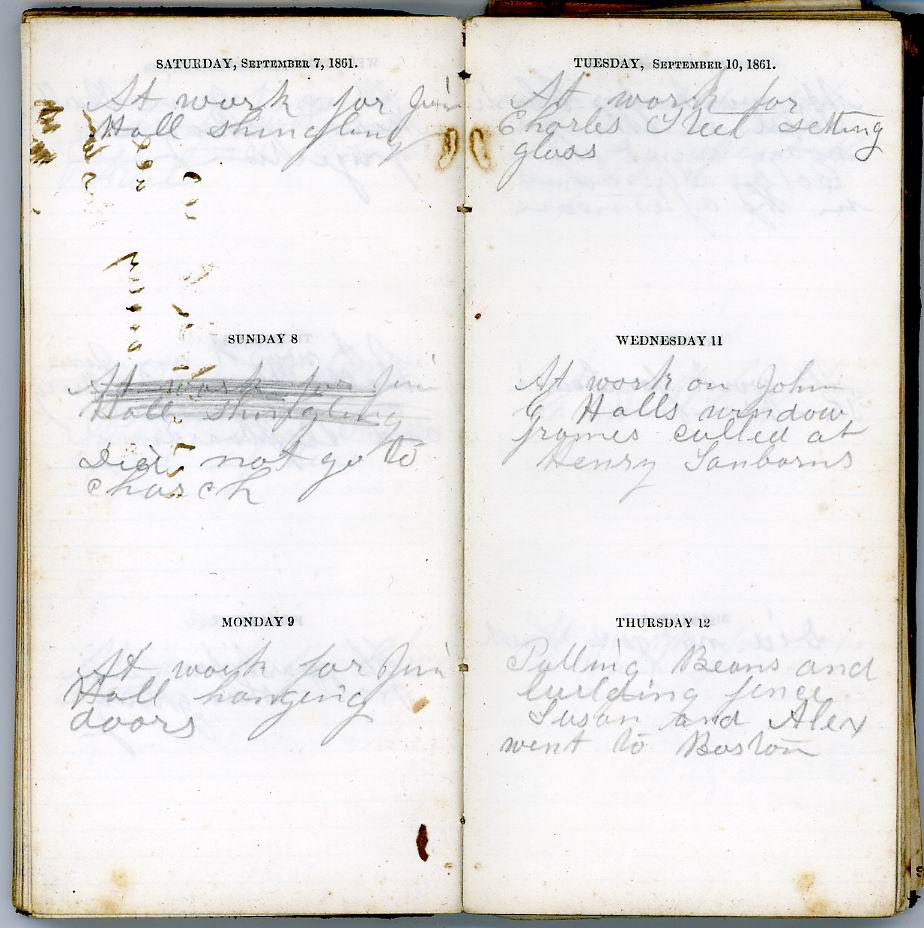 SATURDAY, SEPTEMBER 7, 1861.
At work for Jim
Hall shingling
SUNDAY 8
At work for Jim
Hall shingling
Did not go to
church
MONDAY 9
At work for Jim
Hall hanging
doors
TUESDAY, SEPTEMBER 10, 1861.
At work for
Charles Treet setting
glass
WEDNESDAY 11
At work on John
G Halls window
frames called at
Henry Sanborns
THURSDAY 12
Pulling Beans and
building fence
Susan and Alex
went to Boston